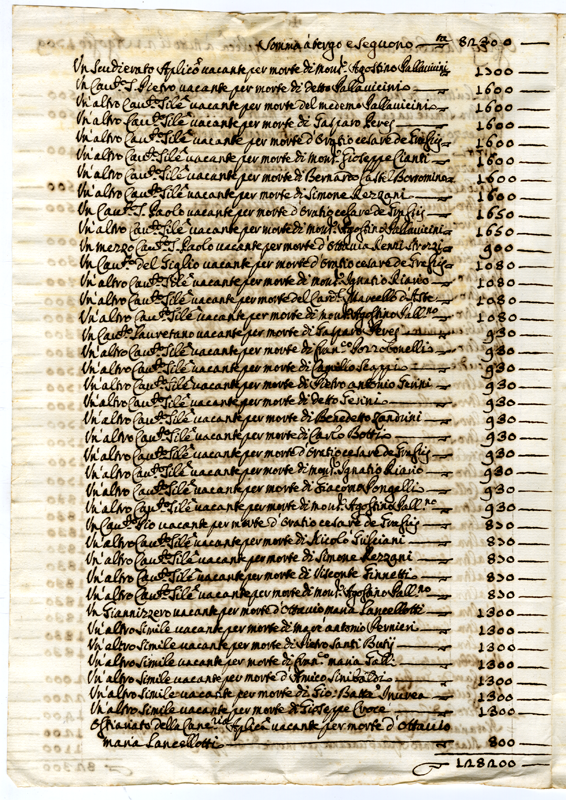 Somma à tergo e seguono ∇ 82300
Un Scudierato Aplic.º vacante per morte di mons.r Agostino Pallavicini 1300
Un Cau.to S. Pietro vacante per morte di detto Pallavicinio 1600
Un'altro Cau.to Sile vacante per morte del medemo Pallavicinio 1600
Un'altro Cau.to Sile vacante per morte di Gasparo Peres 1600
Un'altro Cau.to Sile vacante per morte d'Oratio cesare de 1600
Un'altro Cau.to Sile vacante per morte di mons.r Gioseppe Cianti 1600
Un'altro Cau.to Sile vacante per morte di Bernardo Castel Borromino 1600
Un'altro Cau.to Sile vacante per morte di Simone Rezzani 1600
Un Cau.to S. Paolo vacante per morte d'Oratio cesare de 1650
Un'altro Cau.to Sile vacante per morte di mons.r Agostino Pallavicini 1650
Un mezzo Cau.to S. Paolo vacante per morte d'Ottavia Renzi Strozzi 900
Un Cau.to del Giglio vacante per morte d'Oratio cesare de 1080
Un'altro Cau.to Sile vacante per morte di mons.r Ignatio Riario 1080
Un'altro Cau.to Sile vacante per morte del Card.l Marcello d'Aste 1080
Un'altro Cau.to Sile vacante per morte di mons.r Agostino Pall.no 1080
Un Cau.to Lauretano vacante per morte di Gasparo Peres 930
Un'altro Cau.to Sile vacante per morte di Fran.co Borrobonelli 930
Un'altro Cau.to Sile vacante per morte di Camillo 930
Un'altro Cau.to Sile vacante per morte di Pietro antonio Gerini 930
Un'altro Cau.to Sile vacante per morte di detto Gerini 930
Un'altro Cau.to Sile vacante per morte di Benedetto Landini 930
Un'altro Cau.to Sile vacante per morte di Carlo Botti 930
Un'altro Cau.to Sile vacante per morte d'Oratio cesare de 930
Un'altro Cau.to Sile vacante per morte di mons.r Ignatio Riario 930
Un'altro Cau.to Sile vacante per morte di Giacomo Pongelli 930
Un'altro Cau.to Sile vacante per morte di mons.r Agostino Pall.no 930
Un Cau.to Pio vacante per morte d'Oratio cesare de 830
Un'altro Cau.to Sile vacante per morte di Nicolò Giuliani 830
Un'altro Cau.to Sile vacante per morte di Simone Rezzani 830
Un'altro Cau.to Sile vacante per morte di Visconte Ginnetti 830
Un'altro Cau.to Sile vacante per morte di mons.r Agostino Pall.no 830
Un Giannizzero vacante per morte d'Ottavio maria Lancellotti 1300
Un'altro Simile vacante per morte di marc'antonio Vernieri 1300
Un'altro Simile vacante per morte di Pietro Santi Butij 1300
Un'altro Simile vacante per morte di Fran.co maria Galli 1300
Un'altro Simile vacante per morte d'Amico Sinibaldi 1300
Un'altro Simile vacante per morte di Gio: Batta Invrea 1300
Un'altro Simile vacante per morte di Gioseppe Croce 1300
Ostiariato della Canc.ria Aplic.º vacante per morte d'Ottavio
maria Lancellotti 800
128200